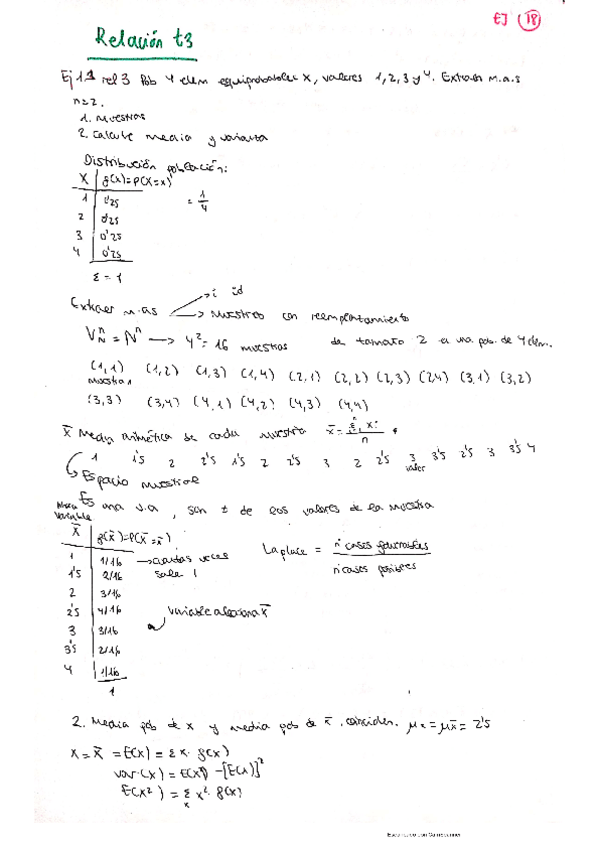 EJ 18
Relación t3
Ej 1.1 rel 3 Pob 4 elem equiprobables X, valores 1, 2, 3 y 4. Extraen m.a.s
n=2.
1. Muestras
2. Calcule media y varianza
Distribución población:
X f(x)=P(X=x)
1 0'25 = 1/4
2 0'25
3 0'25
4 0'25
Σ = 1
Extraer m.a.s → i id
→ muestras con reemplazamiento
V_N^n = N^n → 4² = 16 muestras de tamaño 2 una pob. de 4 elem.
(1,1) (1,2) (1,3) (1,4) (2,1) (2,2) (2,3) (2,4) (3,1) (3,2)
muestra 1
(3,3) (3,4) (4,1) (4,2) (4,3) (4,4)
X̄ Media aritmética de cada muestra x̄ = Σ xi / n
1 1'5 2 2'5 1'5 2 2'5 3 2 2'5 3 3'5 2'5 3 3'5 4
valor
Espacio muestral
Es una v.a, son t de los valores de la muestra
variable
X̄ g(x̄)=P(X̄=x̄)
1 1/16 → cuantas veces
1'5 2/16 sale 1
Laplace = nº casos favorables / nº casos posibles
2 3/16
2'5 4/16 variable aleatoria X̄
3 3/16
3'5 2/16
4 1/16
1
2. Media pob de x y media pob de x̄, coinciden. μx = μx̄ = 2'5
X = X̄ = E(X) = Σ x · f(x)
var(x) = E(X²) - [E(X)]²
E(X²) = Σ x² · f(x)
x
Escaneado con CamScanner